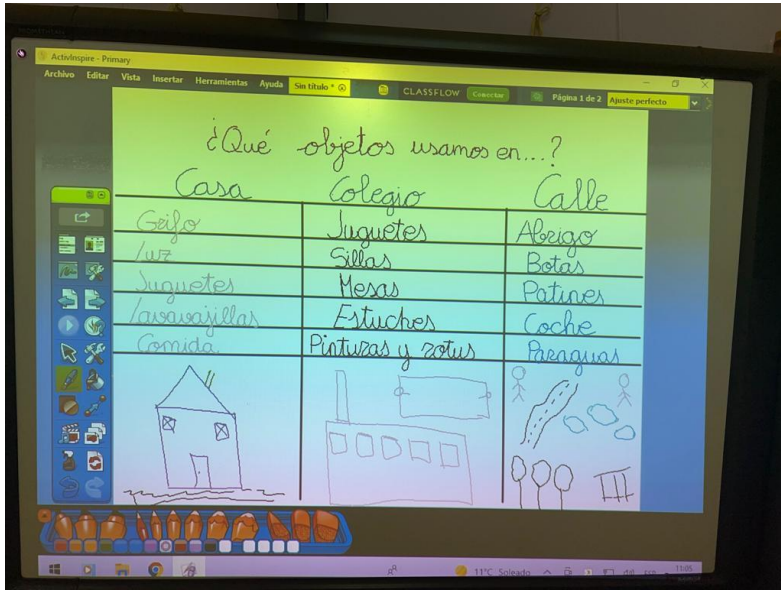 ActivInspire - Primary
Archivo Editar Vista Insertar Herramientas Ayuda Sin título * CLASSFLOW Conectar Página 1 de 2 Ajuste perfecto
¿Qué objetos usamos en...?
Casa Colegio Calle
Grifo Juguetes Abrigo
luz Sillas Botas
Juguetes Mesas Patines
lavavajillas Estuches Coche
Comida Pinturas y rotus Paraguas
11°C Soleado 11:05